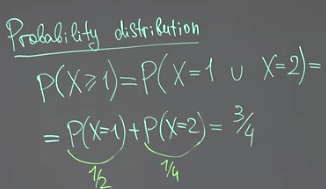 Probability distribution
P(X⩾1)=P(X=1 ∪ X=2)=
=P(X=1)+P(X=2)=3/4
1/2 1/4